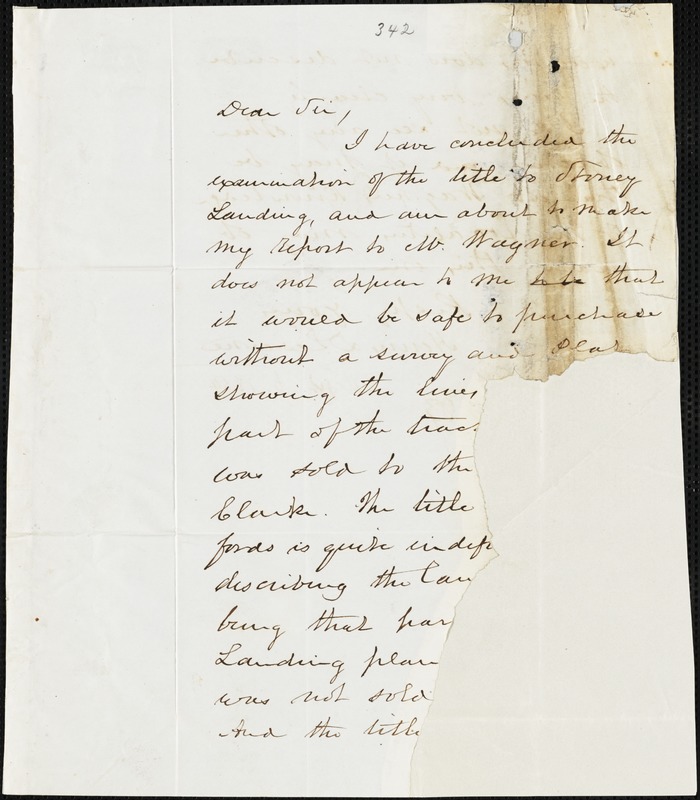 342
Dear Sir,
I have concluded the
examination of the title to Stoney
Landing, and am about to make
my report to Mr. Wagner. It
does not appear to me to be that
it would be safe to purchase
without a survey and Plat
showing the lines
part of the trac
was sold to the
Clarke. The title
fords is quite indef
describing the lan
being that par
Landing plan
was not sold
And the title